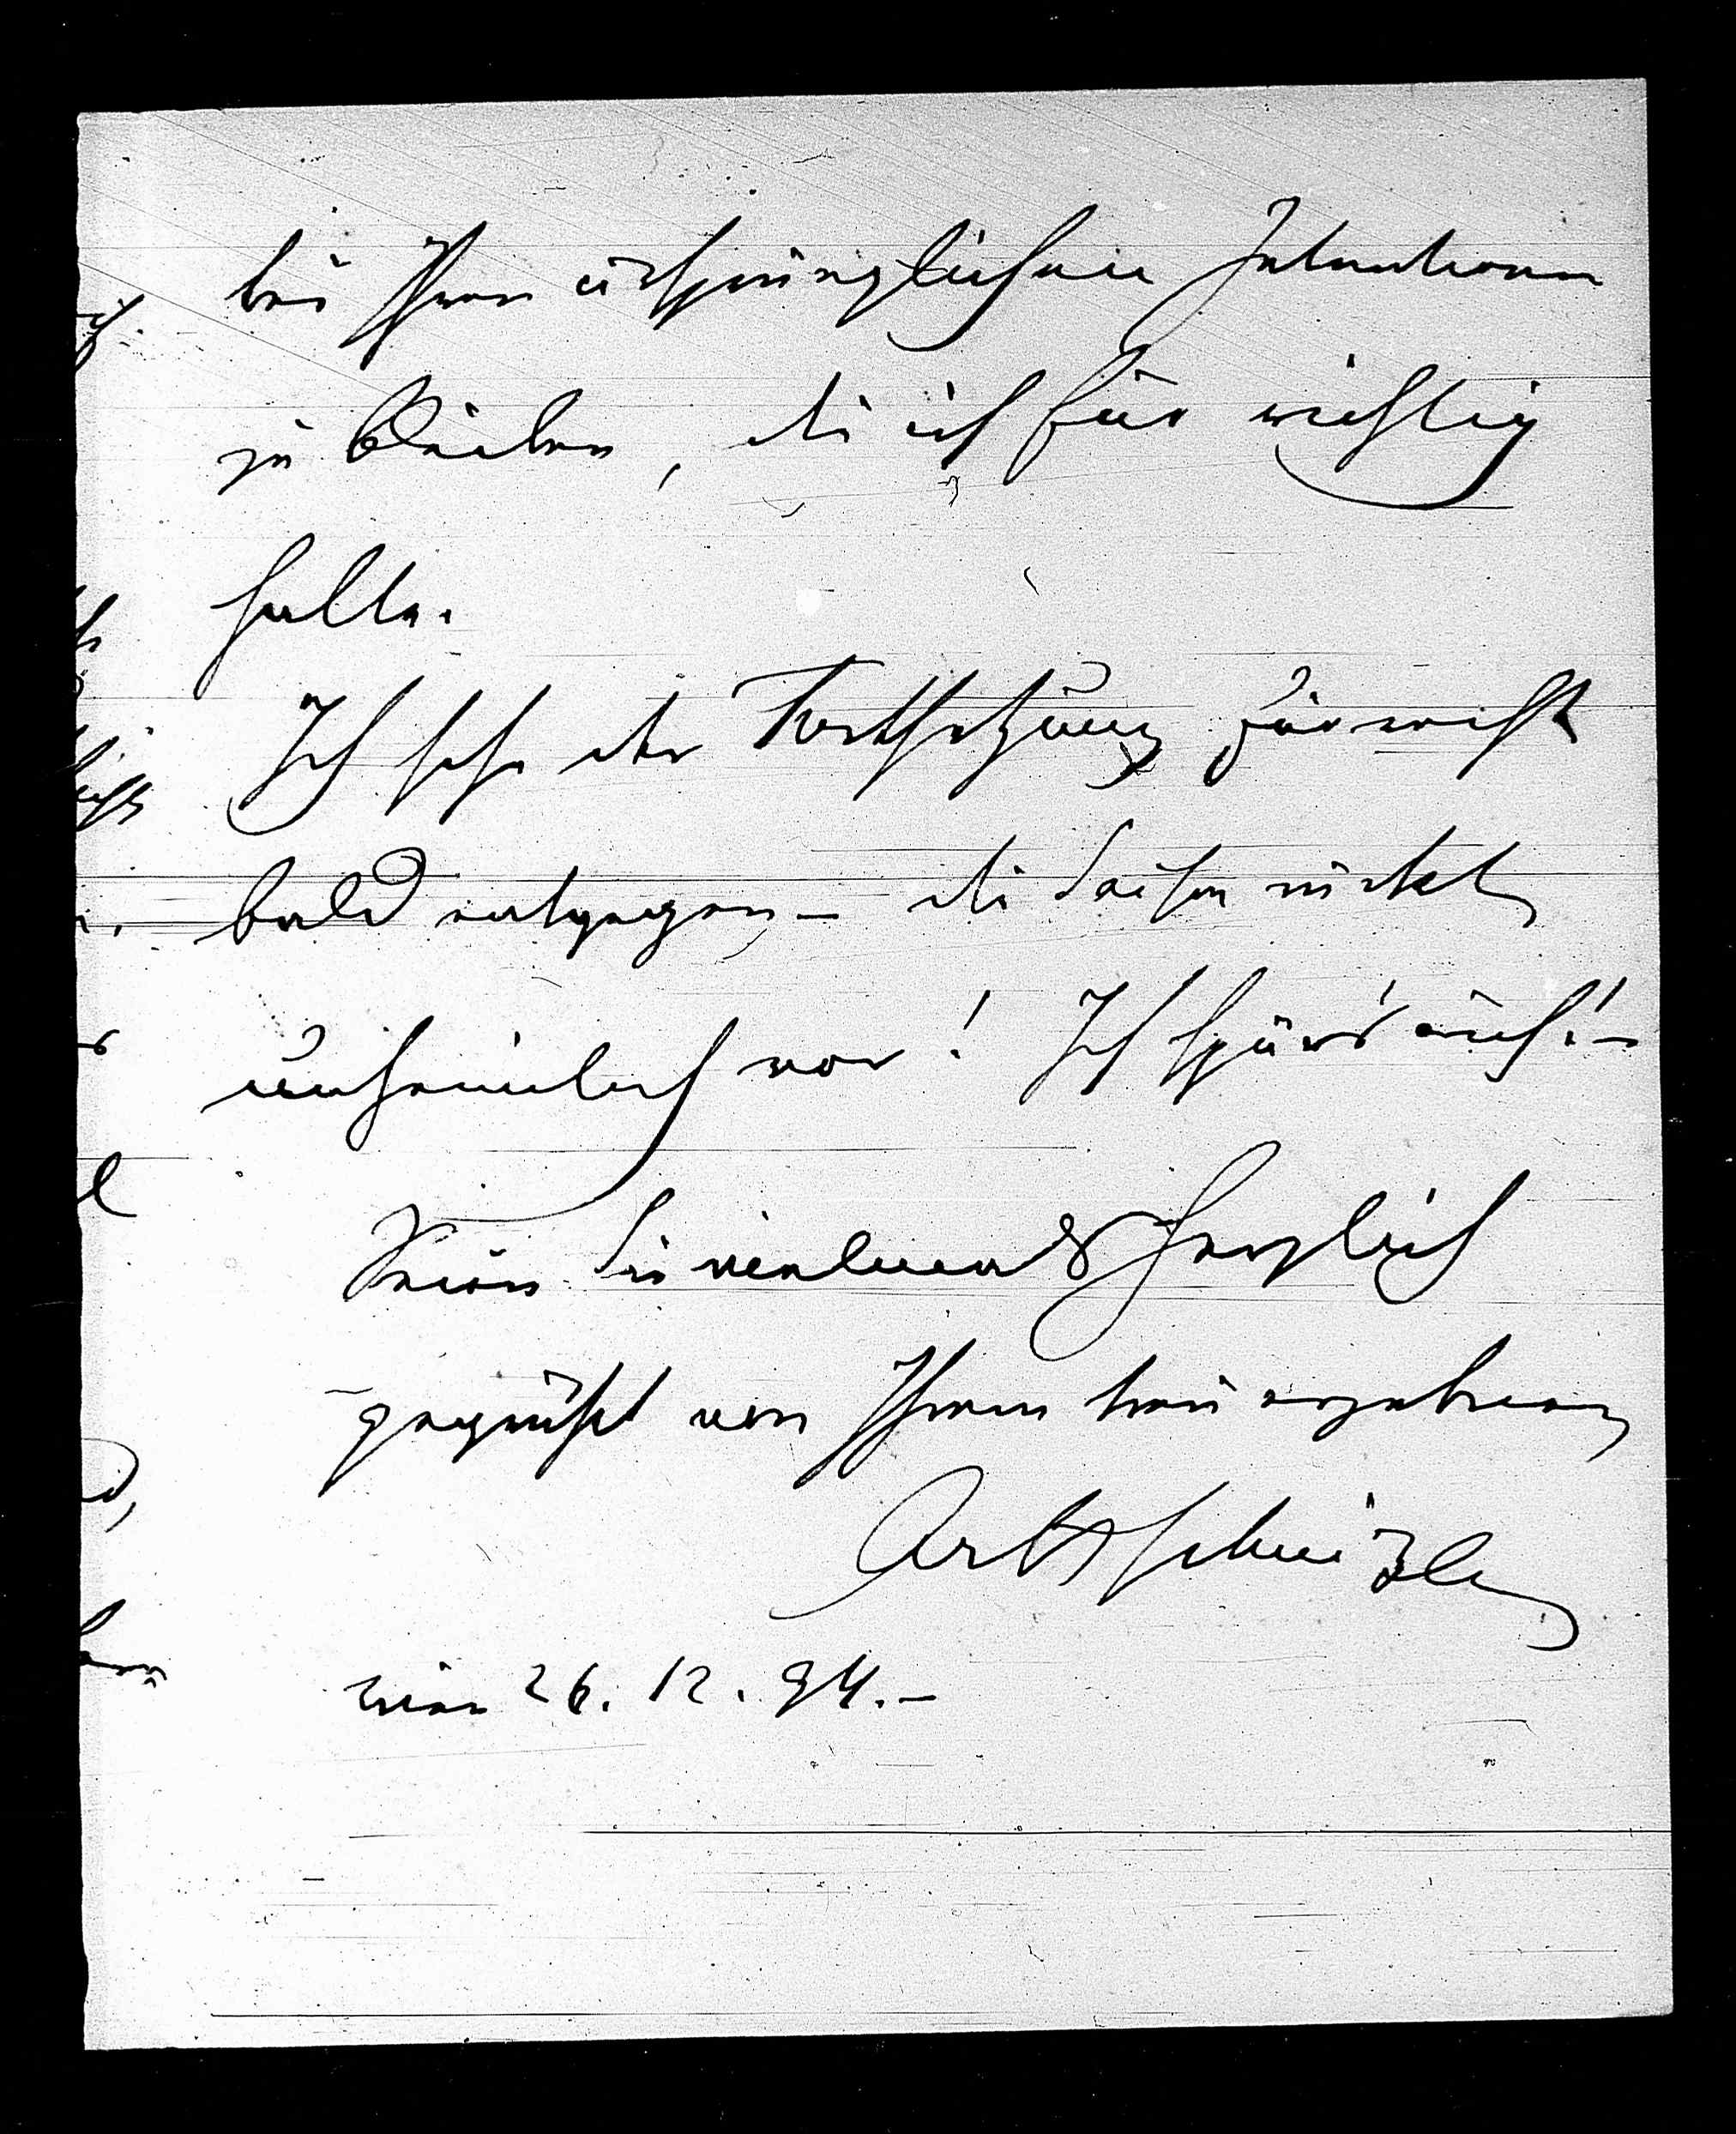 bei Ihren ursprünglichen Intentionen
zu bleiben, die ich für richtig
halte.
Ich sehe der Fortsetzung für recht
bald entgegen – die Saison rückt
unheimlich vor! Ich spür's auch! –
Seien Sie vielmals herzlich
gegrüßt von Ihrem treu ergebenen
ArthSchnitzler
Wien 26. 12. 94. –